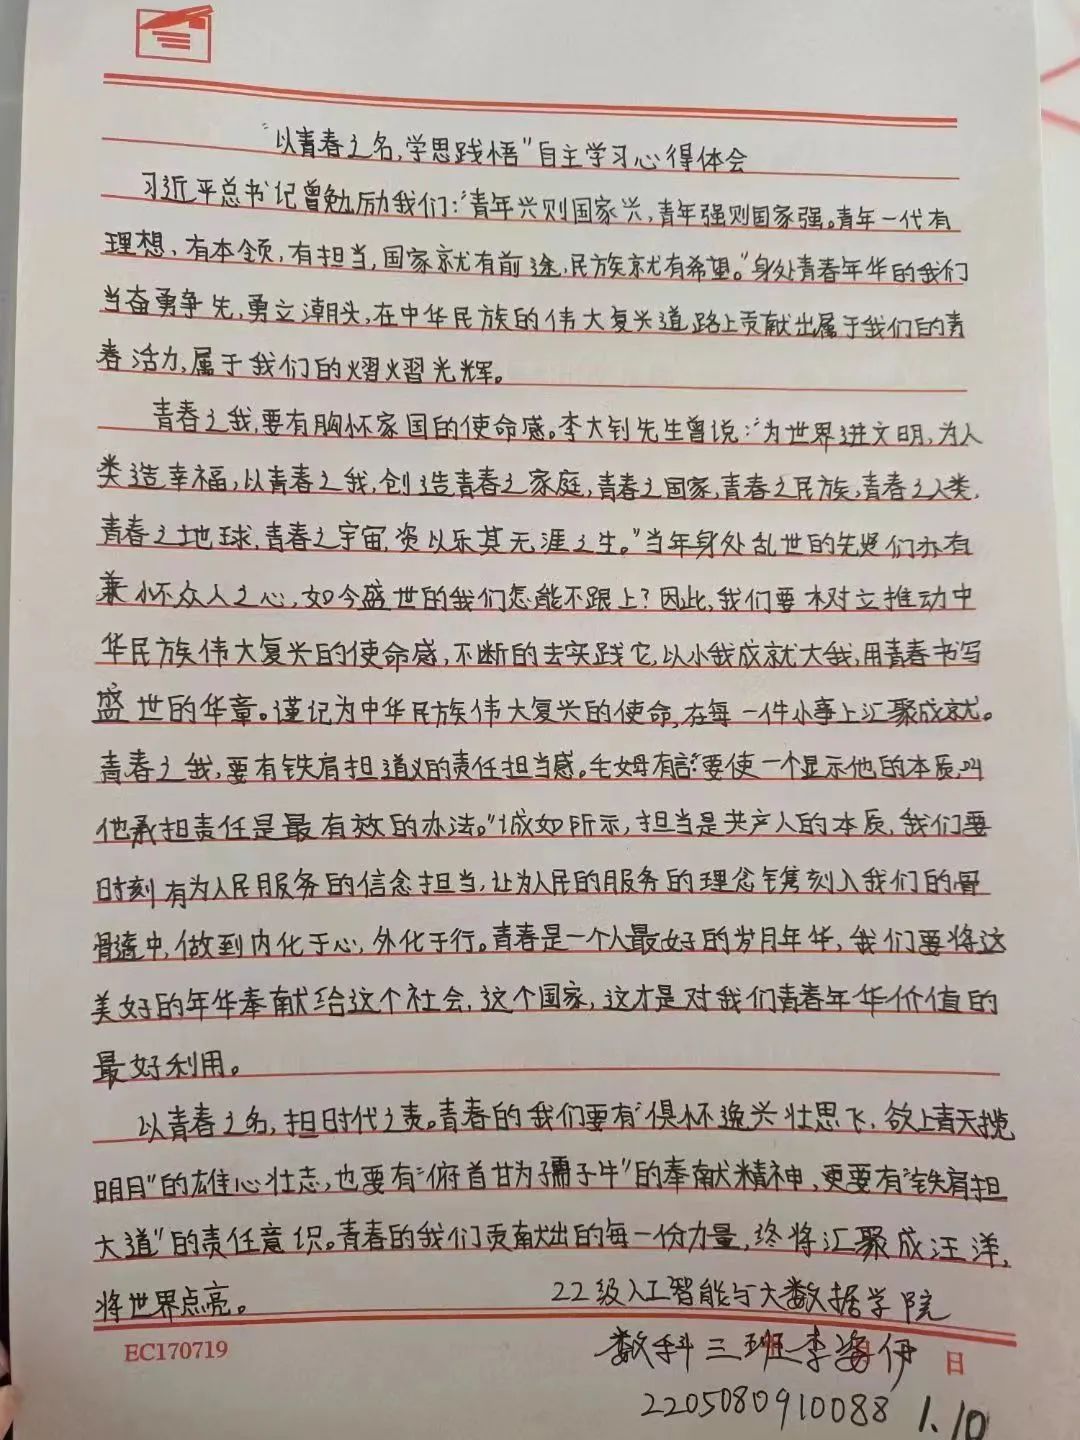 “以青春之名,学思践悟”自主学习心得体会
习近平总书记曾勉励我们:“青年兴则国家兴,青年强则国家强。青年一代有
理想、有本领,有担当,国家就有前途,民族就有希望。”身处青春年华的我们
当奋勇争先,勇立潮头,在中华民族的伟大复兴道路上贡献出属于我们的青
春活力,属于我们的熠熠光辉。
青春之我,要有胸怀家国的使命感。李大钊先生曾说:“为世界进文明,为人
类造幸福,以青春之我,创造青春之家庭,青春之国家,青春之民族,青春之人类,
青春之地球,青春之宇宙,资以乐其无涯之生。”当年身处乱世的先贤们亦有
兼怀众人之心,如今盛世的我们怎能不跟上?因此,我们要树立推动中
华民族伟大复兴的使命感,不断的去实践它,以小我成就大我,用青春书写
盛世的华章。谨记为中华民族伟大复兴的使命,在每一件小事上汇聚成就。
青春之我,要有铁肩担道义的责任担当感。毛姆有言:“要使一个显示他的本质,叫
他承担责任是最有效的办法。”诚如所示,担当是共产人的本质,我们要
时刻有为人民服务的信念担当,让为人民的服务的理念镌刻入我们的骨
骨髓中,做到内化于心,外化于行。青春是一个人最好的岁月年华,我们要将这
美好的年华奉献给这个社会,这个国家,这才是对我们青春年华价值的
最好利用。
以青春之名,担时代之责。青春的我们要有“俱怀逸兴壮思飞,欲上青天揽
明月”的雄心壮志,也要有“俯首甘为孺子牛”的奉献精神,更要有“铁肩担
大道”的责任意识。青春的我们贡献出的每一份力量,终将汇聚成汪洋,
将世界点亮。
22级人工智能与大数据学院
EC170719
数科三班李姿伊
日
2205080910088 1.10